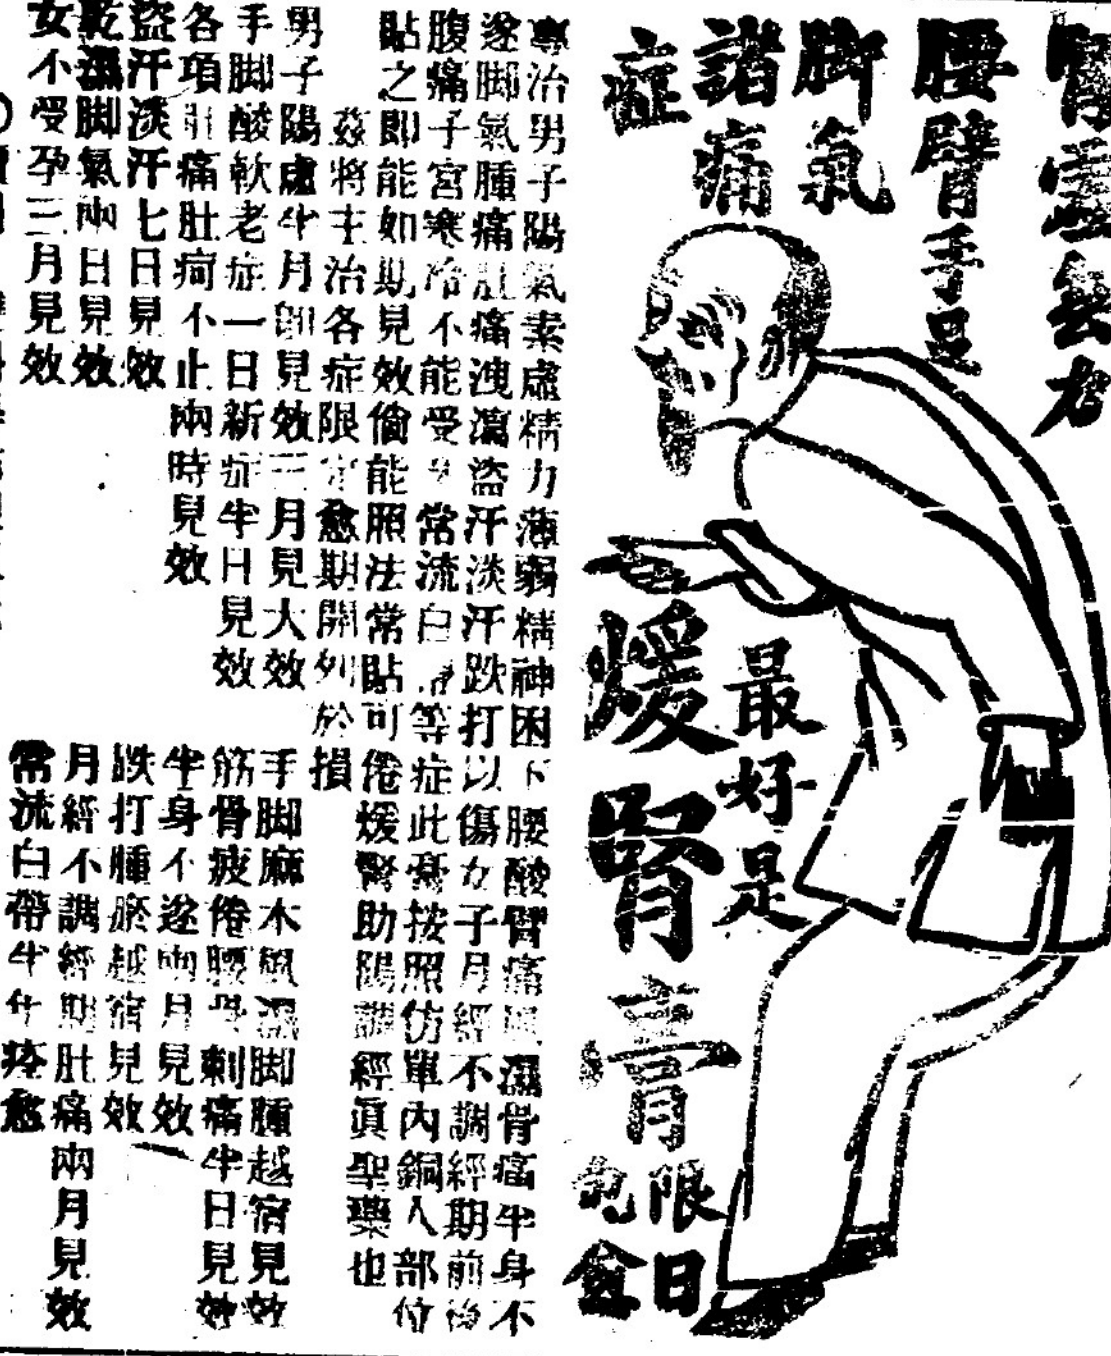 腎虧無力
腰臂手足
脚氣
諸痛
症
最好是
煖腎膏
限日
包愈
專治男子陽氣素虛精力薄弱精神困下腰酸臂痛風濕骨痛半身不
遂脚氣腫痛肚痛洩瀉盜汗淡汗跌打以傷女子月經不調經期前後
腹痛子宮寒冷不能受孕常流白帶等症此膏按照仿單內銅人部位
貼之即能如期見效倘能照法常貼可倦煖腎助陽調經眞聖藥也
茲將主治各症限定愈期開列於
男子陽虛半月卽見效三月見大效
手脚酸軟老症一日新症半日見效
各項肚痛肚疴不止兩時見效
盜汗淡汗七日見效
乾濕脚氣兩日見效
女不受孕三月見效
損
手脚麻木風濕脚腫越宿見效
筋骨疲倦腰骨刺痛半日見效
半身不遂兩月見效
跌打腫瘀越宿見效
月經不調經期肚痛兩月見效
常流白帶半年痊愈